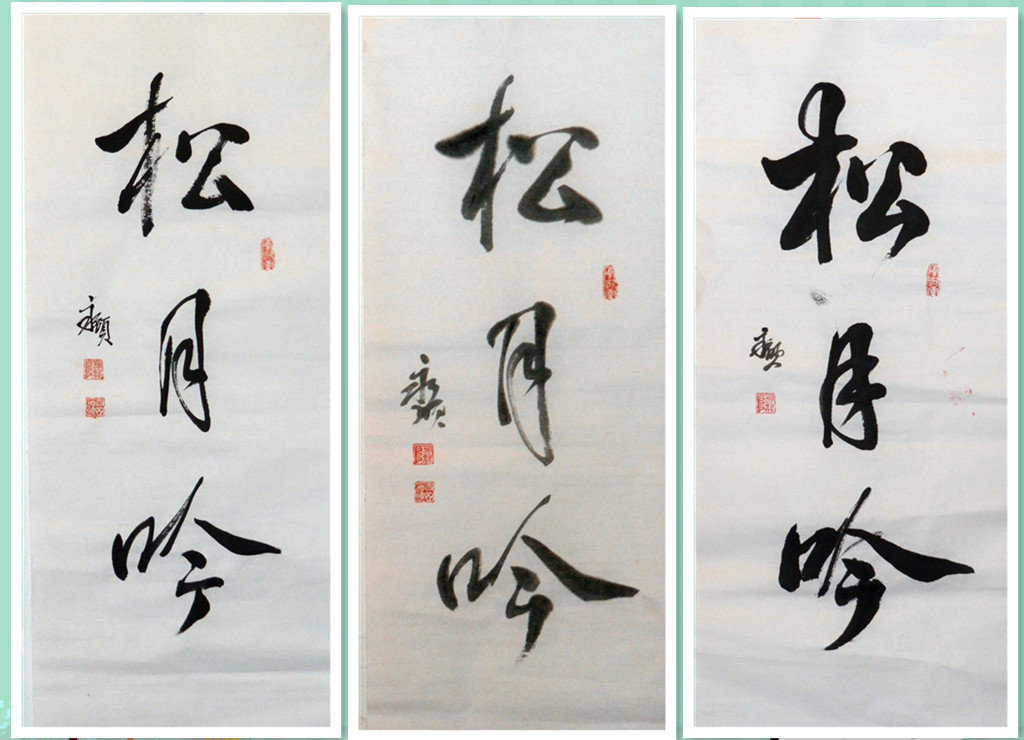 松月吟
松月吟
松月吟